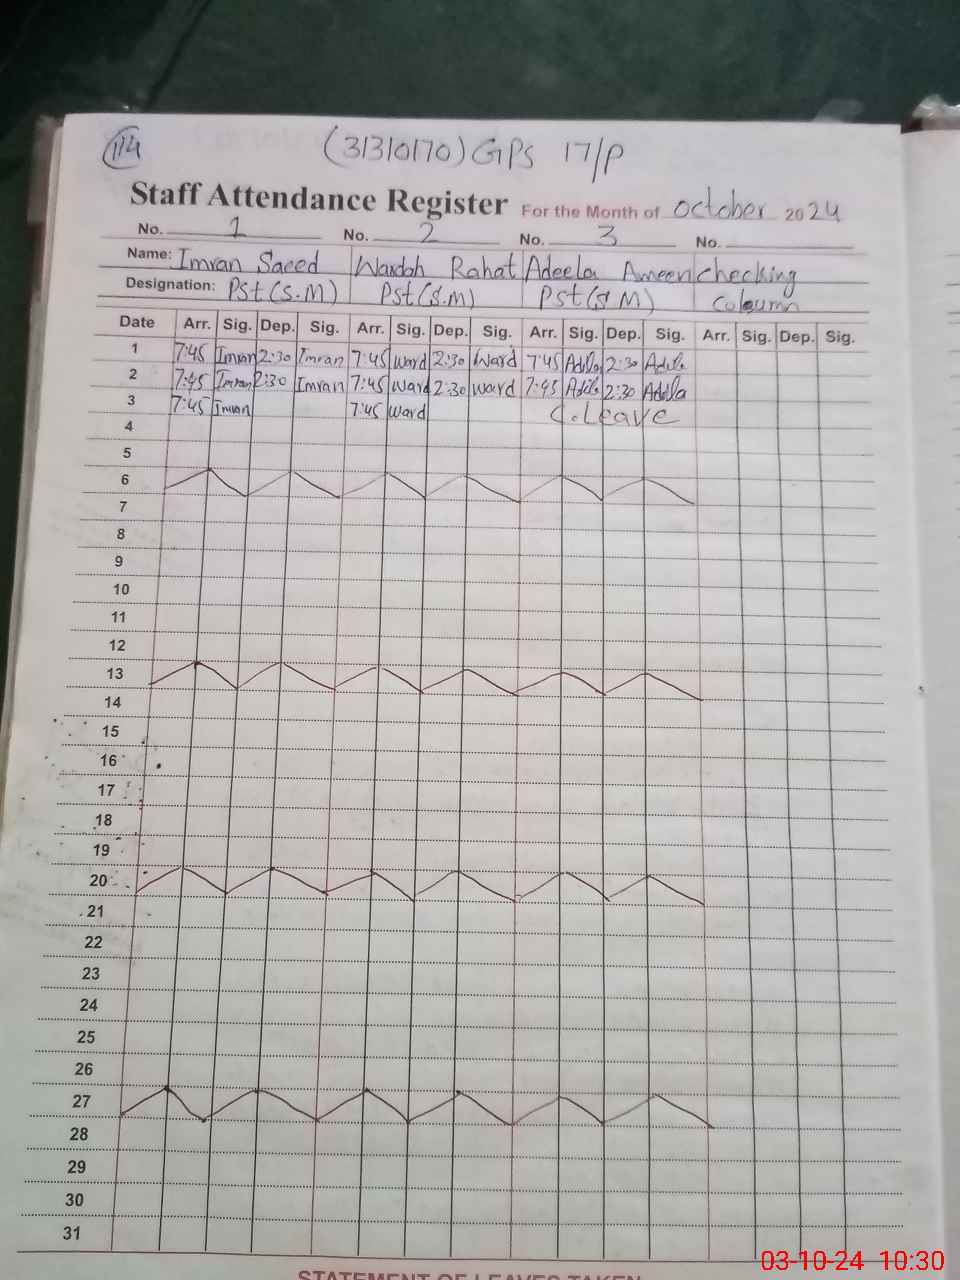 114
(31310170) GPS 17/P
Staff Attendance Register For the Month of October 2024
No. 1 No. 2 No. 3 No.
Name: Imran Saeed Wardah Rahat Adeela Ameen checking
Designation: PSt (S.M) PSt (S.M) PSt (S.M) coloumn
Date Arr. Sig. Dep. Sig. Arr. Sig. Dep. Sig. Arr. Sig. Dep. Sig. Arr. Sig. Dep. Sig.
1 7:45 Imran 2:30 Imran 7:45 Ward 2:30 Ward 7:45 Adila 2:30 Adila
2 7:45 Imran 2:30 Imran 7:45 Ward 2:30 Ward 7:45 Adila 2:30 Adila
3 7:45 Imran 7:45 Ward C.Leave
4
5
6
7
8
9
10
11
12
13
14
15
16
17
18
19
20
21
22
23
24
25
26
27
28
29
30
31
STATEMENT OF LEAVES TAKEN
03-10-24 10:30